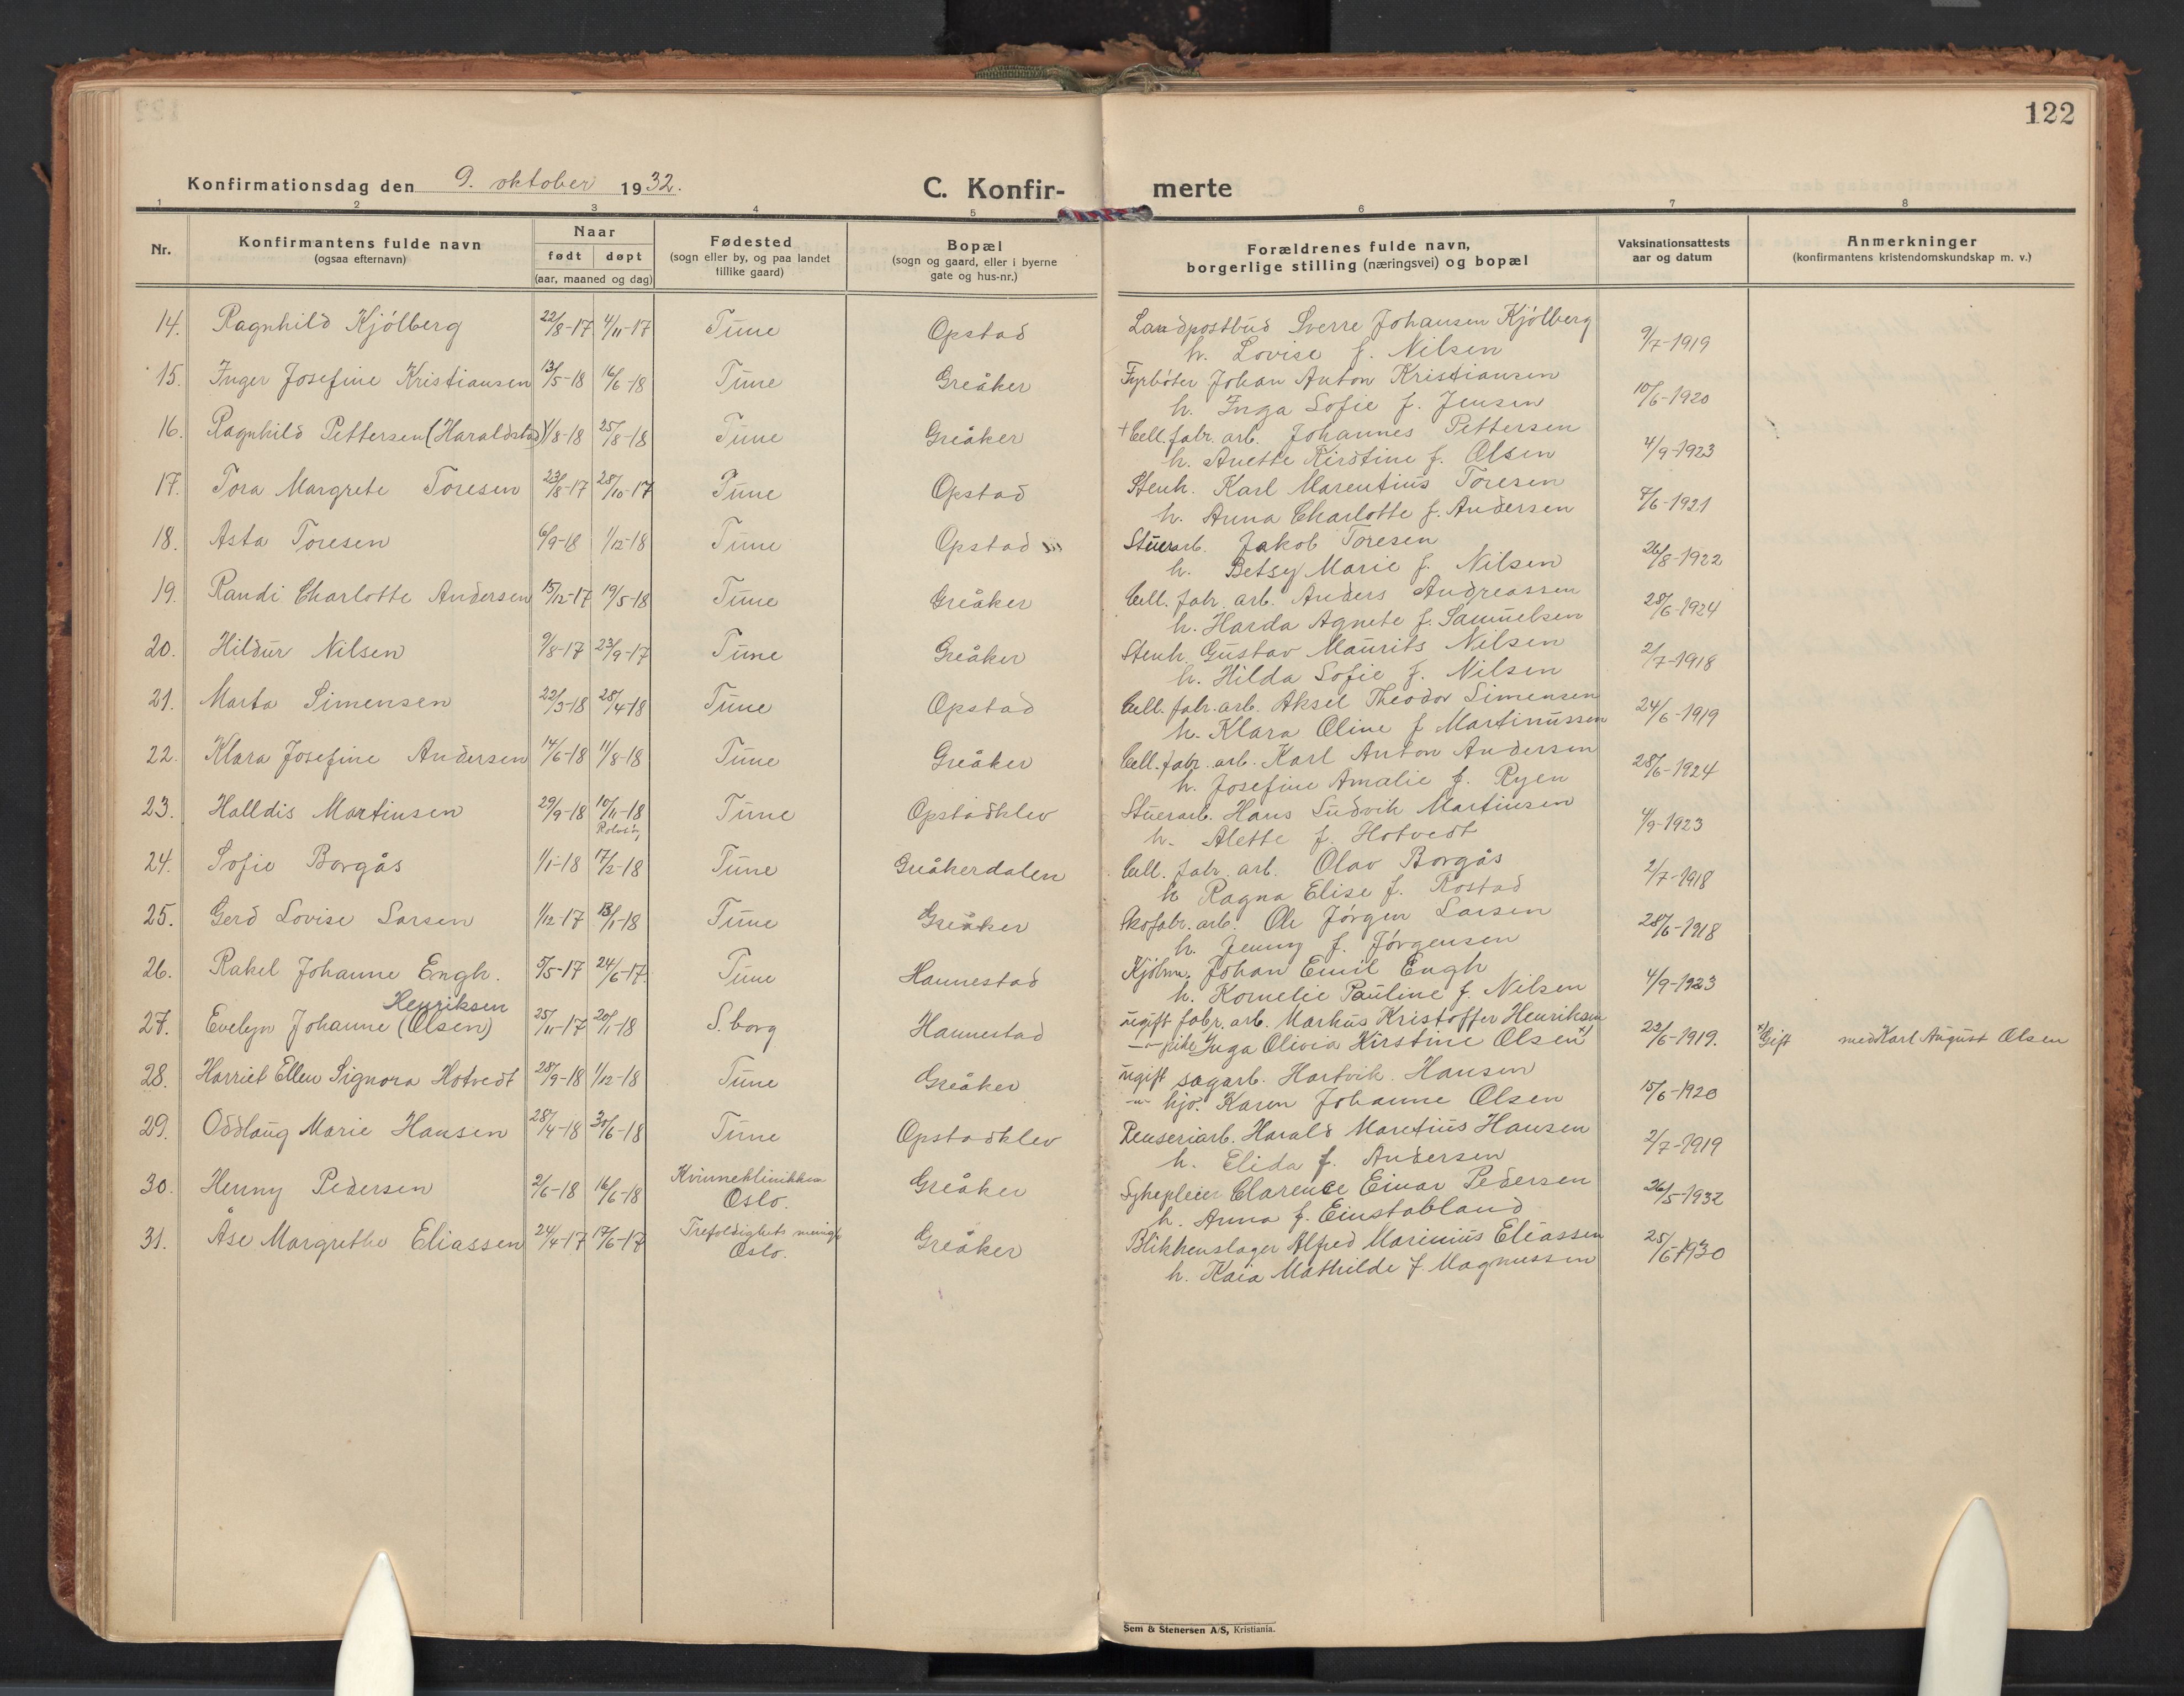 122
Konfirmationsdag den 9. oktober 1932.
C. Konfir- merte
1 2 3 4 5 6 7 8
Nr. | Konfirmantens fulde navn (ogsaa efternavn) | Naar født døpt (aar, maaned og dag) | Fødested (sogn eller by, og paa landet tillike gaard) | Bopæl (sogn og gaard, eller i byerne gate og hus-nr.) | Forældrenes fulde navn, borgerlige stilling (næringsvei) og bopæl | Vaksinationsattests aar og datum | Anmerkninger (konfirmantens kristendomskundskap m. v.)
14. Ragnhild Kjölberg 22/8-17 4/11-17 Tune Opstad Landpostbud Sverre Johansen Kjölberg 9/7-1919
h. Lovise f. Nilsen
15. Inger Josefine Kristiansen 13/5-18 16/6-18 Tune Greåker Fyrböter Johan Anton Kristiansen 10/6-1920
h. Inga Sofie f. Jensen
16. Ragnhild Pettersen (Haraldstad) 1/8-18 25/8-18 Tune Greåker + Cell. fabr. arb. Johannes Pettersen 4/9-1923
h. Anette Kirstine f. Olsen
17. Tora Margrete Toresen 23/8-17 28/10-17 Tune Opstad Stenh. Karl Marentius Toresen 7/6-1921
h. Anna Charlotte f. Andersen
18. Asta Toresen 6/9-18 1/12-18 Tune Opstad Stuerarb. Jakob Toresen 26/8-1922
h. Betsy Marie f. Nilsen
19. Randi Charlotte Andersen 15/12-17 19/5-18 Tune Greåker Cell. fabr. arb. Anders Andreassen 28/6-1924
h. Harda Agnete f. Samuelsen
20. Hildur Nilsen 9/8-17 23/9-17 Tune Greåker Stenh. Gustav Maurits Nilsen 2/7-1918
h. Hilda Sofie f. Nilsen
21. Marta Simensen 22/3-18 28/4-18 Tune Opstad Cell. fabr. arb. Aksel Theodor Simensen 24/6-1919
h. Klara Oline f Martinussen
22. Klara Josefine Andersen 14/6-18 11/8-18 Tune Greåker Cell. fabr. arb. Karl Anton Andersen 28/6-1924
h. Josefine Amalie f. Ryen
23. Halldis Martinsen 29/9-18 10/11-18 Tune Opstadklev Stuerarb. Hans Ludvik Martinsen 4/9-1923
h. Alette f. Hotvedt
24. Sofie Borgås 1/1-18 17/2-18 Tune Greåkerdalen Cell. fabr. arb. Olav Borgås 2/7-1918
h Ragna Elise f. Rostad
25. Gerd Lovise Larsen 1/12-17 13/1-18 Tune Greåker Skofabr. arb. Ole Jörgen Larsen 28/6-1918
h. Jenny f. Jörgensen
26. Rakel Johanne Engh. 5/5-17 24/6-17. Tune Hannestad Kjöbm. Johan Emil Engh 4/9-1923
h. Kornelie Pauline f. Nilsen
Henriksen
27. Evelyn Johanne (Olsen) 25/11-17 20/1-18 S. borg Hannestad ugift fabr. arb. Markus Kristoffer Henriksen 23/6-1919. x) Gift med Karl August Olsen
-"- pike Inga Olivia Kirstine Olsen x)
28. Harriet Ellen Signora Hotvedt 28/9-18 1/12-18 Tune Greåker ugift sagarb. Hartvik Hansen 15/6-1920
-"- hjp. Karen Johanne Olsen
29. Oddlaug Marie Hansen 28/4-18 30/6-18 Tune Opstadklev Renseriarb. Harald Maretius Hansen 2/7-1919
h. Elida f. Andersen
30. Henny Pedersen 2/6-18 16/6-18 Kvinneklinikken Oslo. Greåker Sykepleier Clarence Einar Pedersen 26/5-1932
h. Anna f. Einstabland
31. Åse Margrethe Eliassen 24/4-17 17/6-17 Trefoldighets menigh Oslo. Greåker Blikkenslager Alfred Marinius Eliassen 25/6-1930
h. Kaia Mathilde f. Magnussen
Sem & Stenersen A/S, Kristiania.